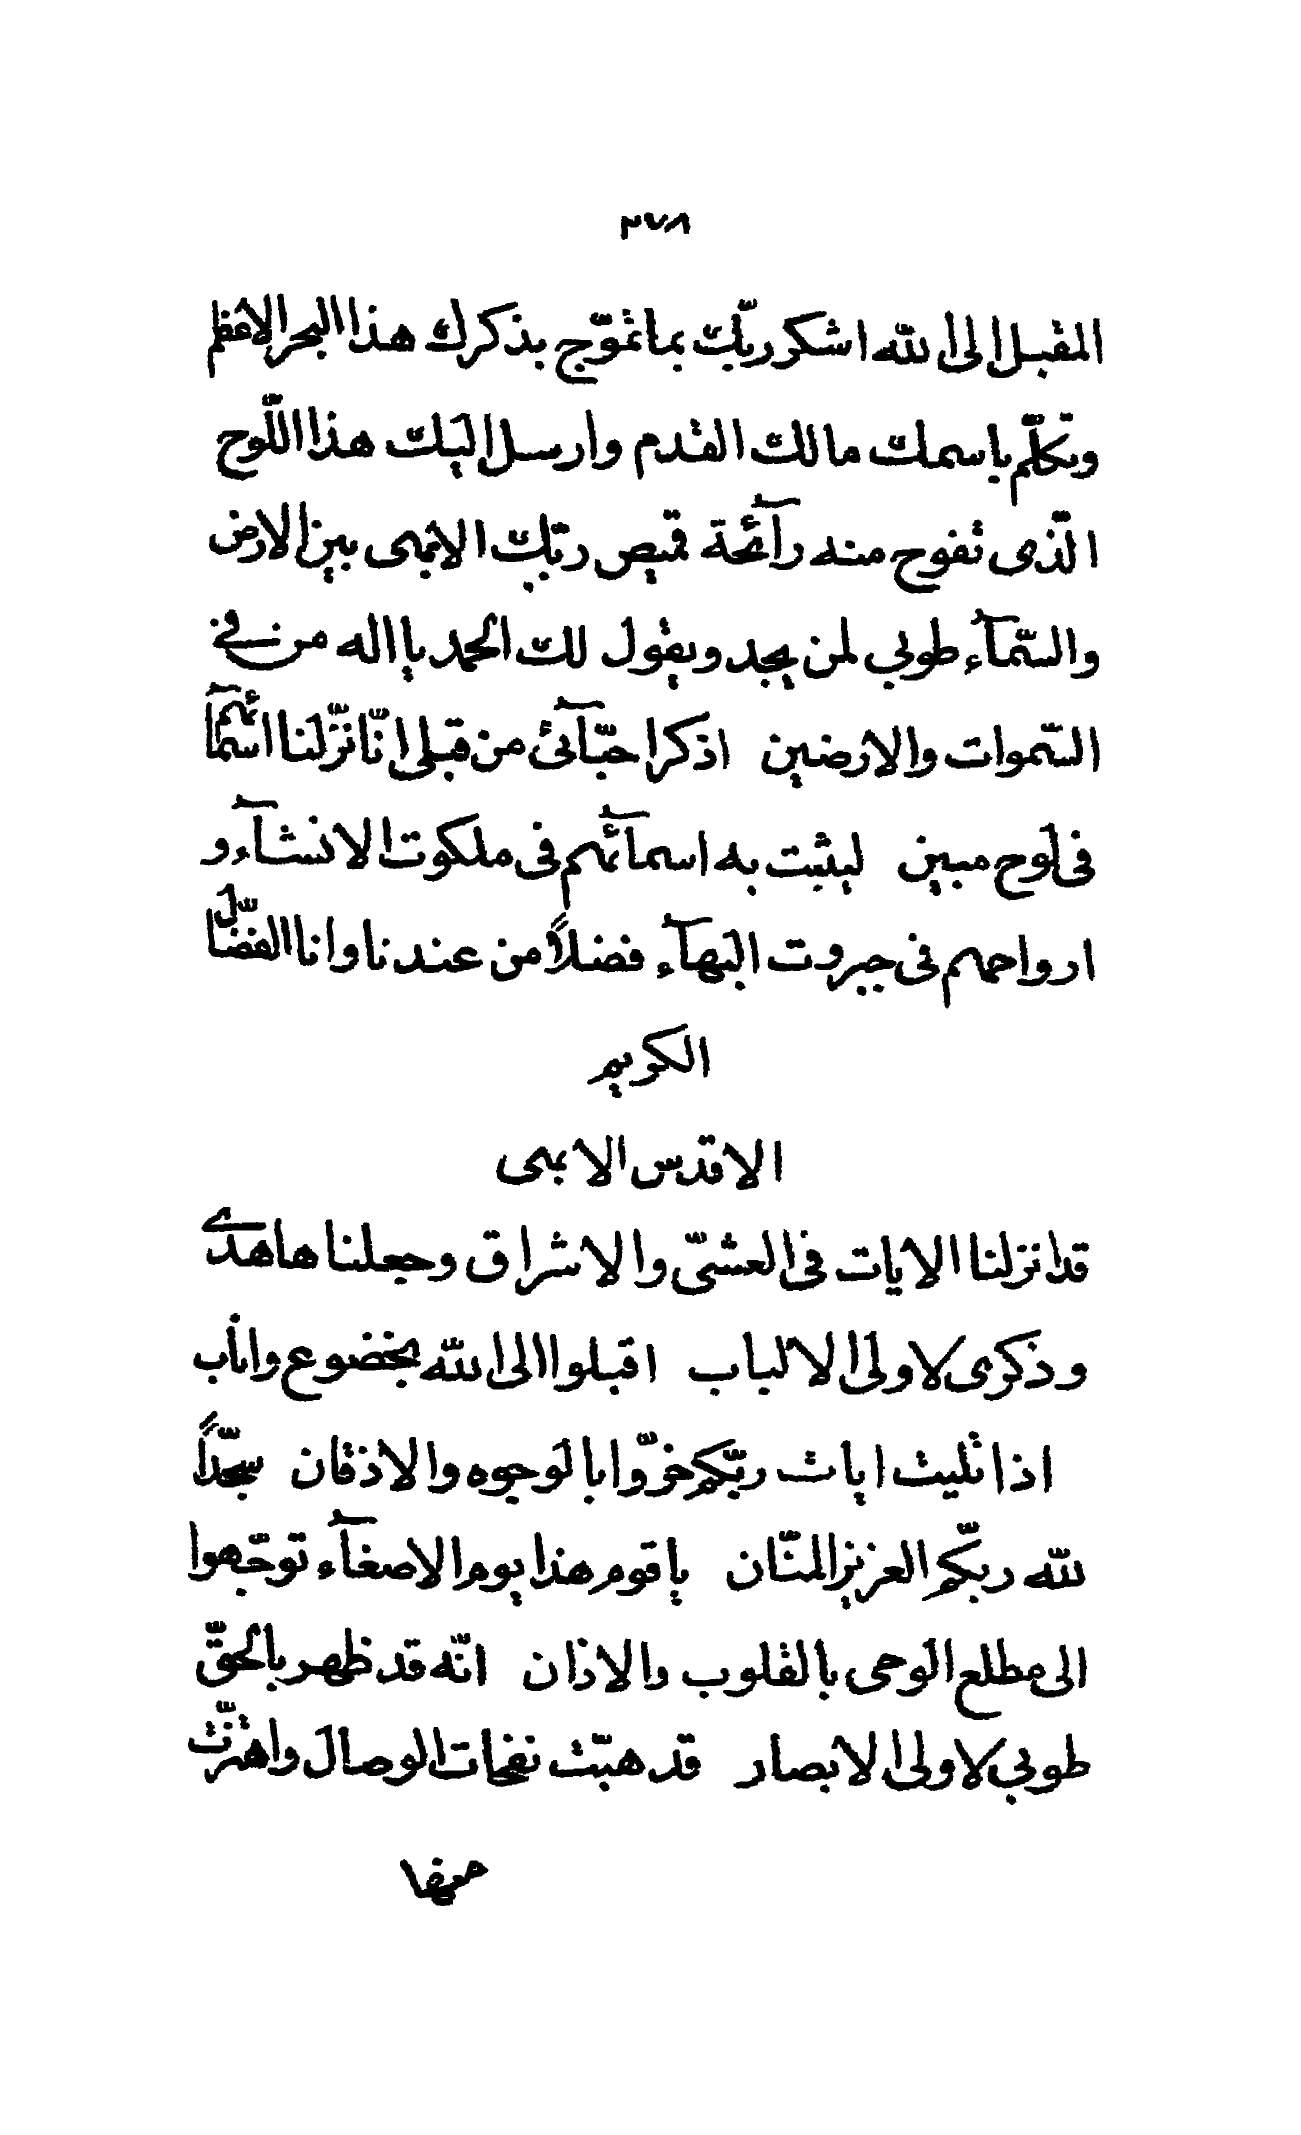 ٢٧٨
المقبل الى الله اشكر ربّك بما تموّج بذكرك هذا البحر الاعظم
وتكلّم باسمك مالك القدم وارسل اليك هذا اللّوح
الّذى تفوح منه رآئحة قميص ربّك الابهى بين الارض
والسّمآء طوبى لمن يجد ويقول لك الحمد يا اله من فى
السّموات والارضين اذكر احبّآئى من قبلى انّا نزّلنا اسمآئهم
فى لوح مبين ليثبت به اسمآئهم فى ملكوت الانشآء و
ارواحهم فى جبروت البهآء فضلاً من عندنا وانا الفضّال
الكريم
الاقدس الابهى
قد انزلنا الايات فى العشىّ والاشراق وجعلناها هدى
وذكرى لاولى الالباب اقبلوا الى الله بخضوع واناب
اذا تليت ايات ربّكم خرّوا بالوجوه والاذقان سجّداً
لله ربكم العزيز المنّان يا قوم هذا يوم الاصغآء توجّهوا
الى مطلع الوحى بالقلوب والاذان انّه قد ظهر بالحقّ
طوبى لاولى الابصار قد هبّت نفحات الوصال واهتزّت